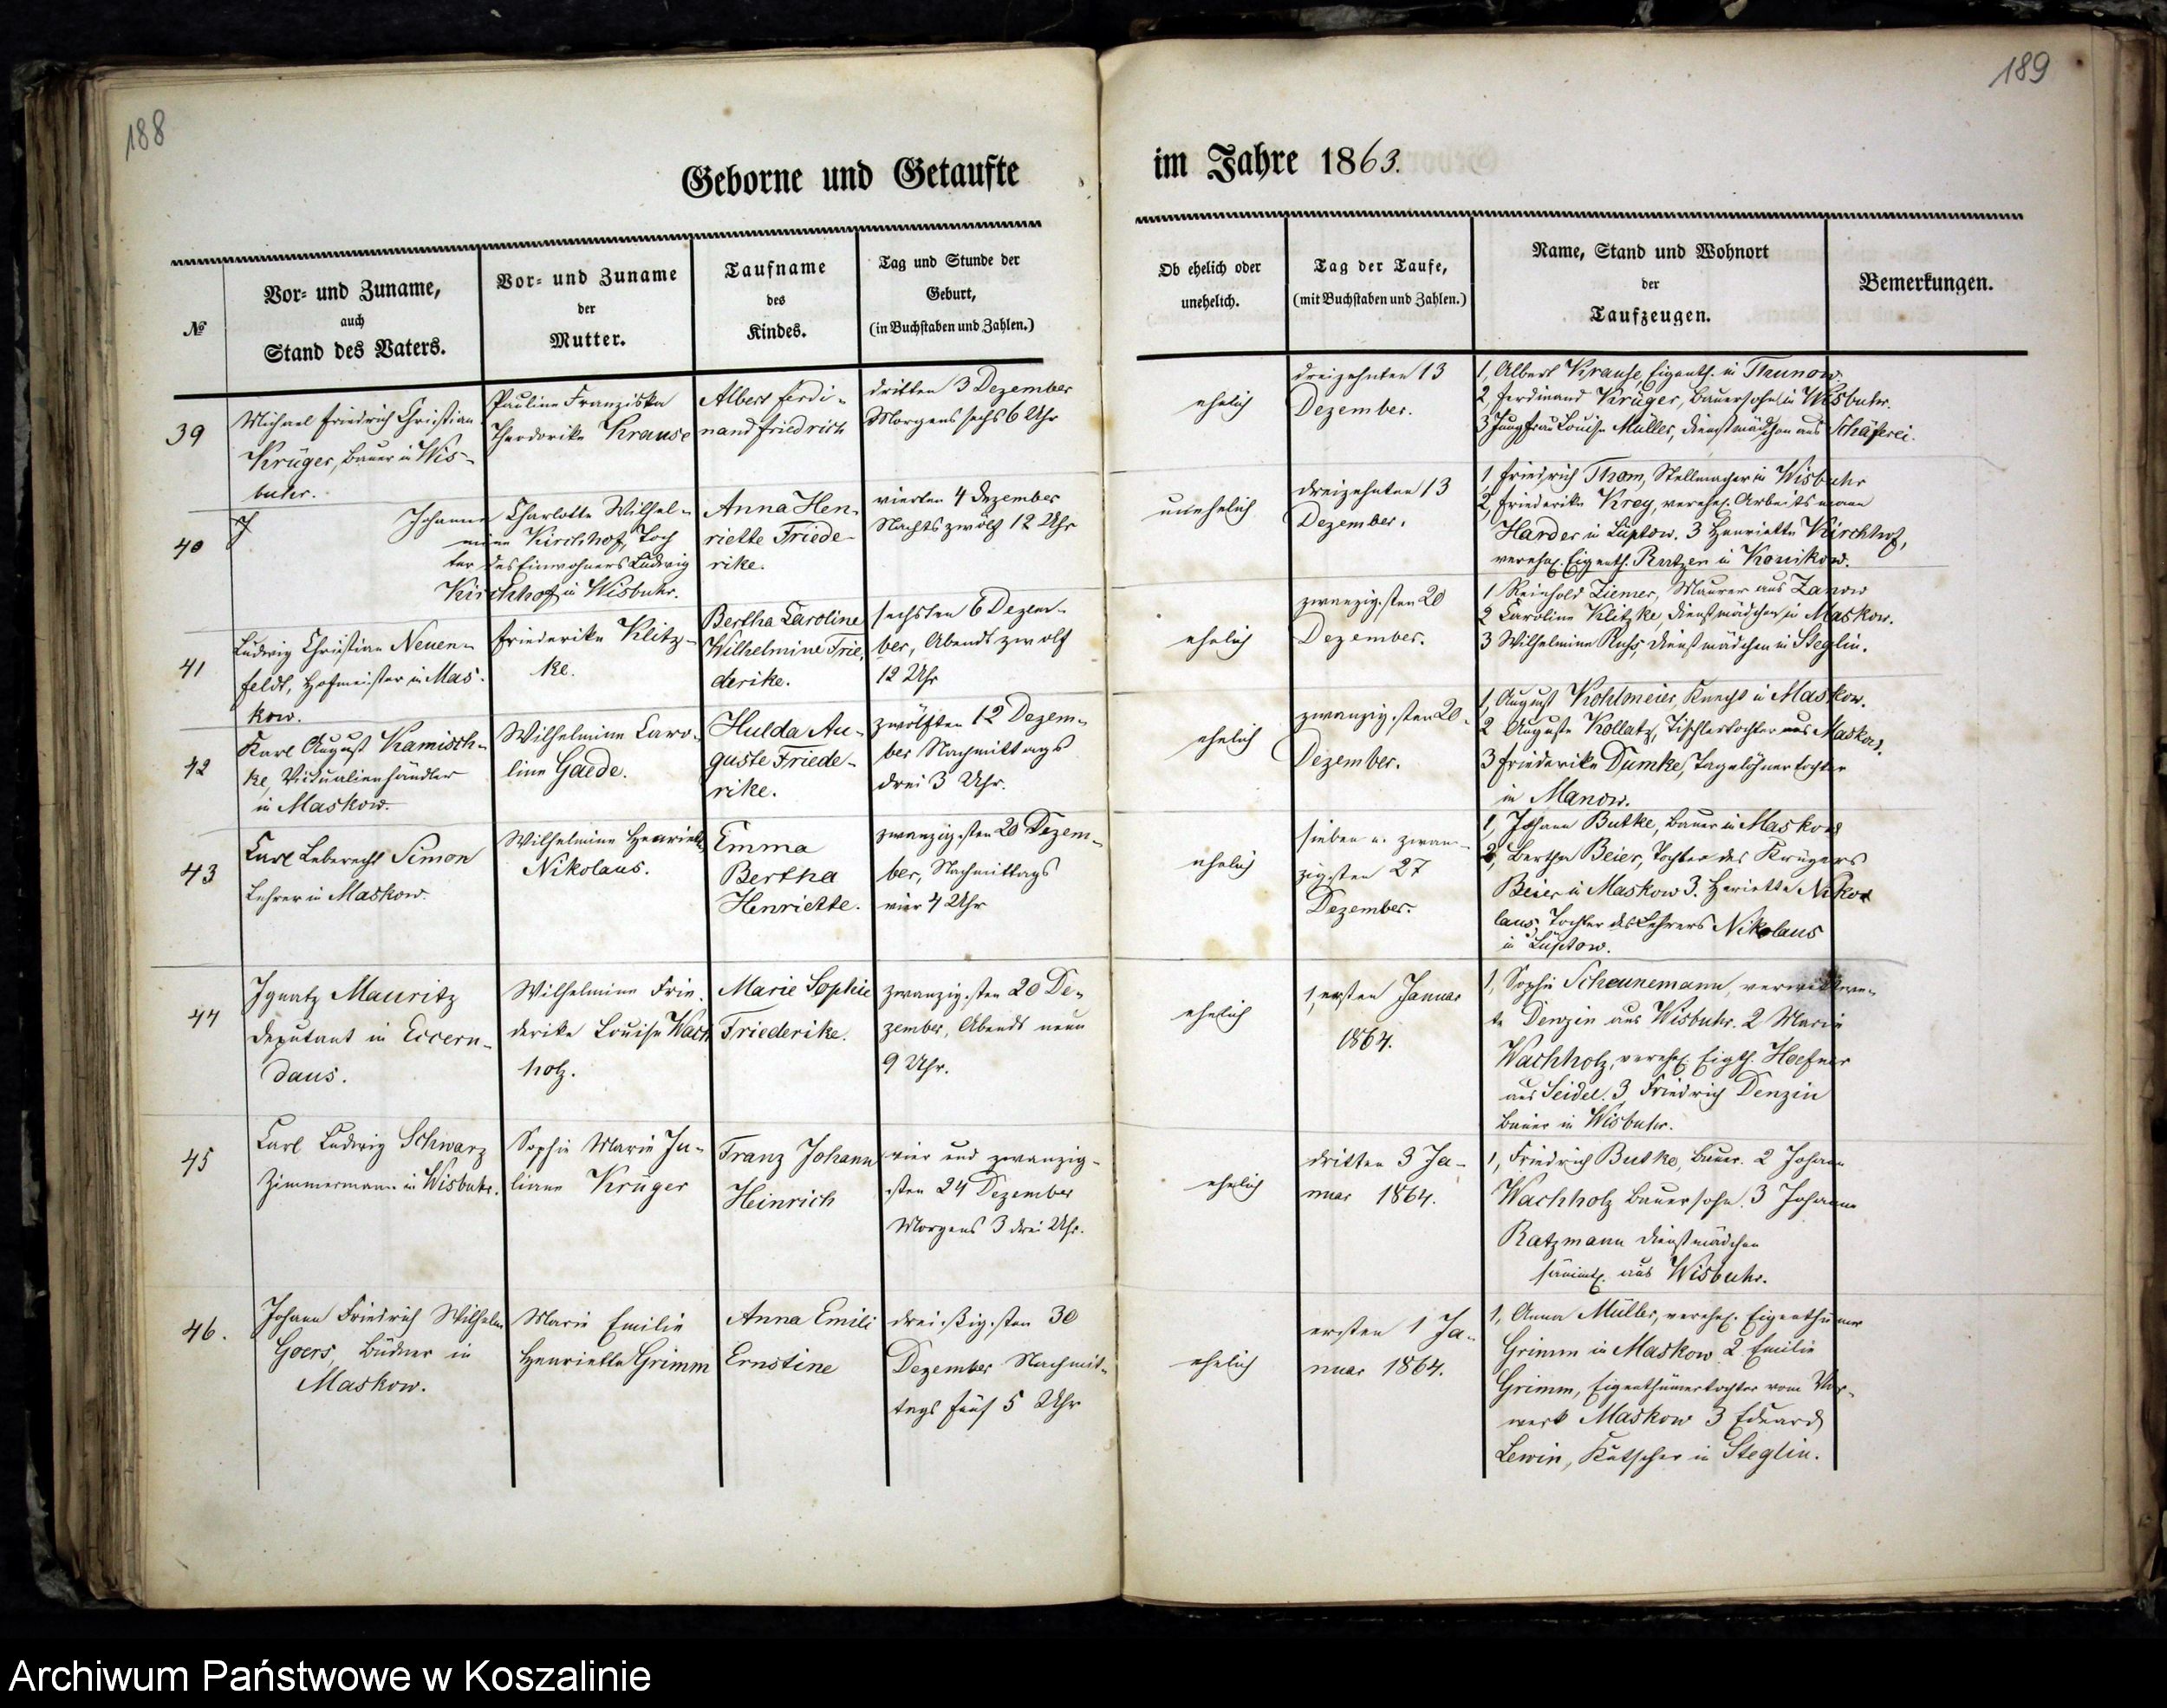 188
Geborne und Getaufte
№
Vor- und Zuname,
auch
Stand des Vaters.
Vor- und Zuname
der
Mutter.
Taufname
des
Kindes.
Tag und Stunde der
Geburt,
(in Buchstaben und Zahlen.)
39
Michael Friedrich Christian
Krüger, Bauer in Wis-
buhr.
Pauline Franziska
Theodorike Krause
Albert Ferdi-
nand Friedrich
dritten 3 Dezember
Morgens sechs 6 Uhr
40
Johanne Charlotte Wilhel-
mine Kirchhof, Toch
ter des Einwohners Ludwig
Kirchhof in Wisbuhr.
Anna Hen-
riette Friede-
rike.
vierten 4 Dezember
Nachts zwölf 12 Uhr
41
Ludwig Christian Neuen-
feldt, Hofmeister in Mas-
kow.
Friederike Klitz-
ke.
Bertha Caroline
Wilhelmine Frie-
derike.
sechsten 6 Dezem-
ber, Abends zwölf
12 Uhr
42
Karl August Kamisch-
ke, Victualienhändler
in Maskow.
Wilhelmine Caro-
line Gaede.
Hulda Au-
guste Friede-
rike.
zwölften 12 Dezem-
ber Nachmittags
drei 3 Uhr.
43
Carl Leberecht Simon
Lehrer in Maskow.
Wilhelmine Henriette
Nikolaus.
Emma
Bertha
Henriette.
zwanzigsten 20 Dezem-
ber, Nachmittags
vier 4 Uhr
44
Ignatz Mauritz
Deputant in Eccern-
daus.
Wilhelmine Frie-
derike Louise Wach
holz.
Marie Sophie
Friederike.
zwanzigsten 20 De-
zember, Abends neun
9 Uhr.
45
Carl Ludwig Schwarz
Zimmermann in Wisbuhr.
Sophie Marie Ju-
liane Krüger
Franz Johann
Heinrich
vier und zwanzig-
sten 24 Dezember
Morgens 3 drei Uhr.
46.
Johann Friedrich Wilhelm
Goers, Büdner in
Maskow.
Marie Emilie
Henriette Grimm
Anna Emili
Ernstine
dreißigsten 30
Dezember Nachmit-
tags fünf 5 Uhr
189
im Jahre 1863.
Ob ehelich oder
unehelich.
Tag der Taufe,
(mit Buchstaben und Zahlen.)
Name, Stand und Wohnort
der
Taufzeugen.
Bemerkungen.
ehelich
dreizehnten 13
Dezember.
1, Albert Krause, Eigenth. in Thunow
2, Ferdinand Krüger, Bauersohn in Wisbuhr.
3 Jungfrau Louise Müller, Dienstmädchen aus Schäferei.
unehelich
dreizehnten 13
Dezember.
1, Friedrich Thom, Stellmacher in Wisbuhr
2, Friederike Krey, verehel. Arbeitsmann
Harder in Lüptow. 3 Henriette Kirchhof,
verehel. Eigenth. Rutzen in Konikow.
ehelich
zwanzigsten 20
Dezember.
1 Reinhold Ziemer, Maurer aus Zanow
2 Caroline Klitzke, Dienstmädchen in Maskow.
3 Wilhelmine Russ, Dienstmädchen in Steglin.
ehelich
zwanzigsten 20.
Dezember.
1, August Kohlmeier, Knecht in Maskow.
2 Auguste Kollatz, Tischlertochter aus Maskow.
3 Friederike Dumke, Tagelöhnertochter
in Manow.
ehelich
sieben u. zwan-
zigsten 27
Dezember.
1, Johann Butke, Bauer in Maskow
2, Bertha Beier, Tochter des Krügers
Beier in Maskow 3. Henriette Niko-
laus, Tochter des Lehrers Nikolaus
in Lüptow.
ehelich
1, ersten Januar
1864.
1, Sophie Scheunemann, verwittwe-
te Denzin aus Wisbuhr. 2 Marie
Wachholz, verehel. Eigth. Hoefner
aus Seidel. 3, Friedrich Denzin
Bauer in Wisbuhr.
ehelich
dritten 3 Ja-
nuar 1864.
1, Friedrich Butke, Bauer. 2 Johann
Wachholz Bauersohn. 3 Johanne
Ratzmann Dienstmädchen
sämmtl. aus Wisbuhr.
ehelich
ersten 1 Ja-
nuar 1864.
1, Anna Müller, verehel. Eigenthümer
Grimm in Maskow 2 Emilie
Grimm, Eigenthümertochter vom Vor-
werk Maskow 3 Eduard
Lewin, Kutscher in Steglin.
Archiwum Państwowe w Koszalinie